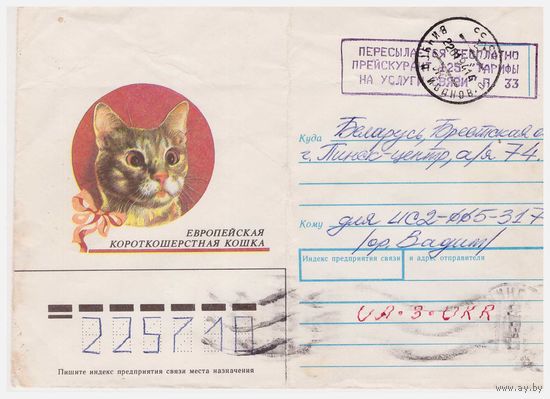 ПЕРЕСЫЛАЕТСЯ БЕСПЛАТНО
ПРЕЙСКУРАНТ 125 ТАРИФЫ
НА УСЛУГИ СВЯЗИ П 33
Куда Беларусь Брестская о
г. Пинск-центр, а/я 74.
Кому для UC2-065-317
/ор. Вадим/
Индекс предприятия связи и адрес отправителя
UA·3·UKR
ЕВРОПЕЙСКАЯ
КОРОТКОШЕРСТНАЯ КОШКА
225710
Пишите индекс предприятия связи места назначения
www.ay.by